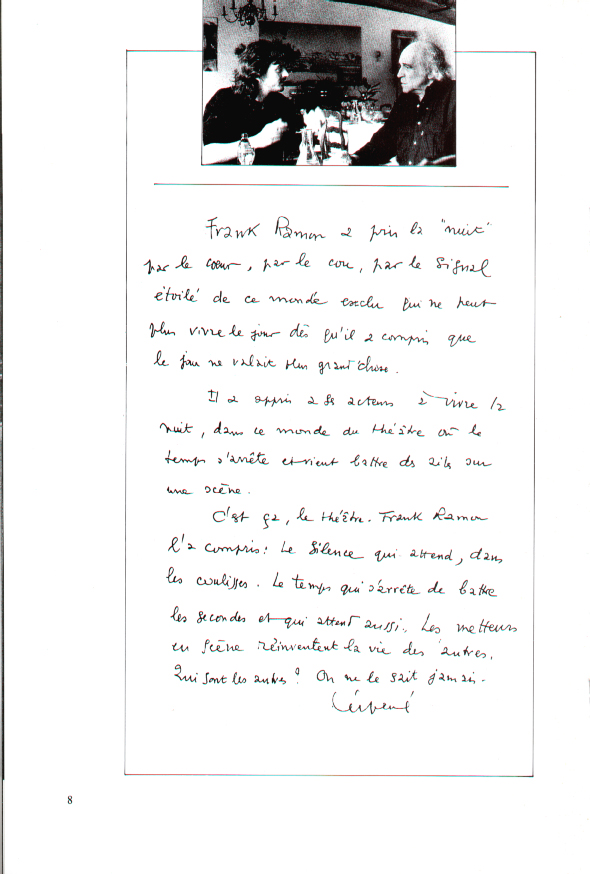 Frank Ramon a pris la "nuit"
par le coeur, par le cou, par le signal
étoilé de ce monde exclu qui ne peut
plus vivre le jour dès qu'il a compris que
le jour ne valait plus grand'chose.
Il a appris à ses acteurs à vivre la
nuit, dans ce monde du théâtre où le
temps s'arrête et vient battre des ails sur
une scène.
C'est ça, le théâtre. Frank Ramon
l'a compris: Le silence qui attend, dans
les coulisses. Le temps qui s'arrête de battre
les secondes et qui attend aussi.. Les metteurs
en scène réinventent la vie des autres.
Qui sont les autres? On ne le sait jamais.
8